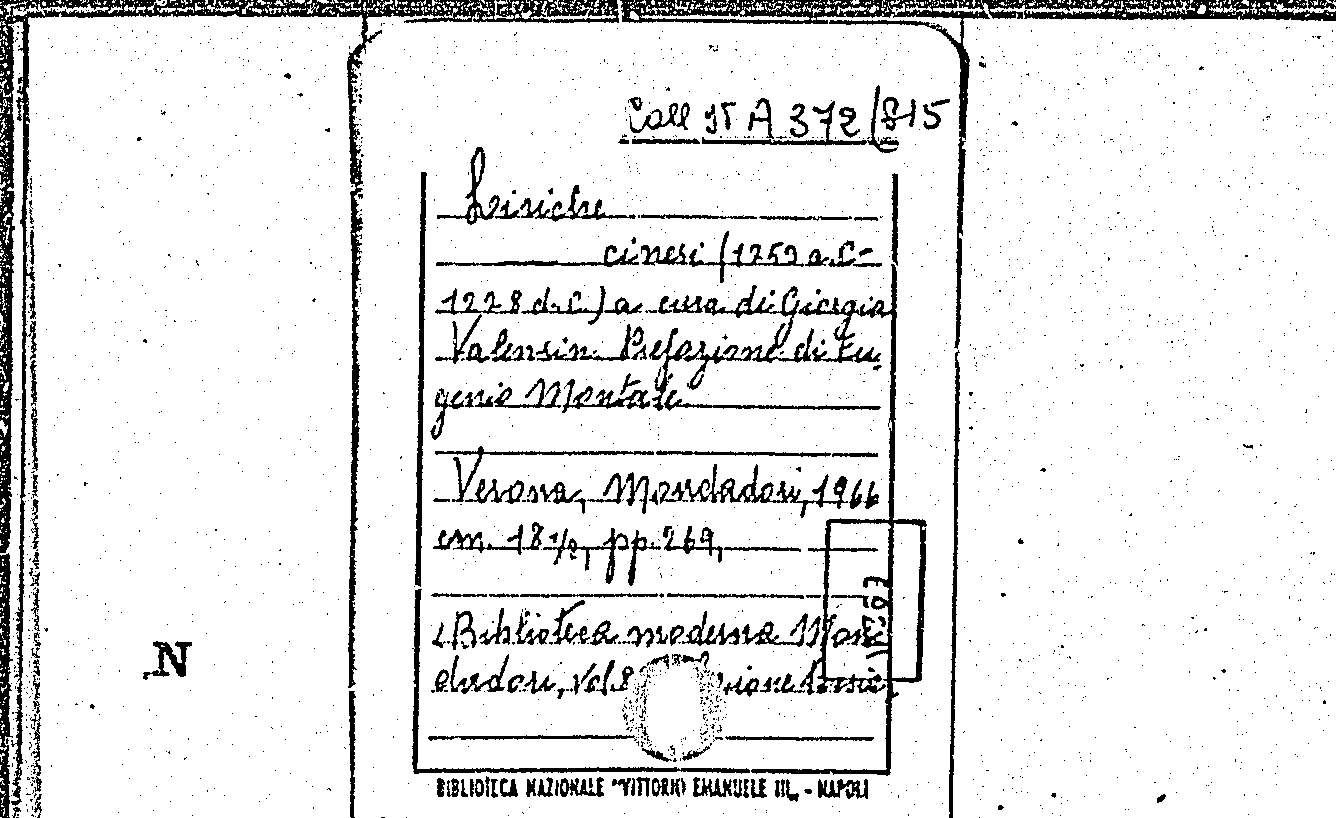 Coll 15 A 372 (815
Liriche
cinesi (1753 a.C-
1278 d.C.) a cura di Giorgia
Valensin. Prefazione di Eu-
genio Montale
Verona, Mondadori, 1966
cm. 18½, pp. 269,
(Biblioteca moderna Mon-
dadori, Vol. 8
N
BIBLIOTECA NAZIONALE "VITTORIO EMANUELE III" - NAPOLI